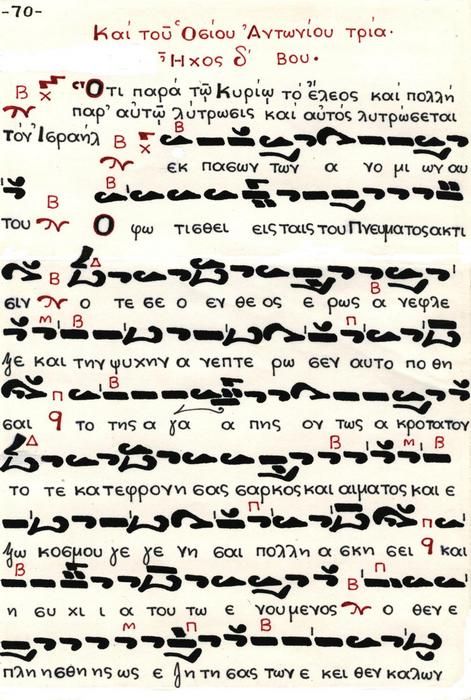 -70-
Καί τοῦ Ὁσίου Ἀντωνίου τρία.
Ἦχος δ΄ Βου.
Ὅτι παρά τῷ Κυρίῳ τό ἔλεος καί πολλή
παρ' αὐτῷ λύτρωσις καί αὐτός λυτρώσεται
τόν Ἰσραήλ
εκ πασων των α νο μι ων αυ
του Ο φω τισθει εις ταις του Πνευματος ακτι
σιν ο τε σε ο εν θε ος ε ρως α νεφλε
ξε και την ψυχην α νεπτε ρω σεν αυτο πο θη
σαι το της α γα α πης ον τως α κροτατον
το τε κατεφρονη σας σαρκος και αιματος και ε
ξω κοσμου γε γε νη σαι πολλη α σκη σει και
η συ χι ι α του τω ε νουμενος ο θεν ε
πλη ησθη ης ως ε ζη τη σας των ε κει θεν καλων